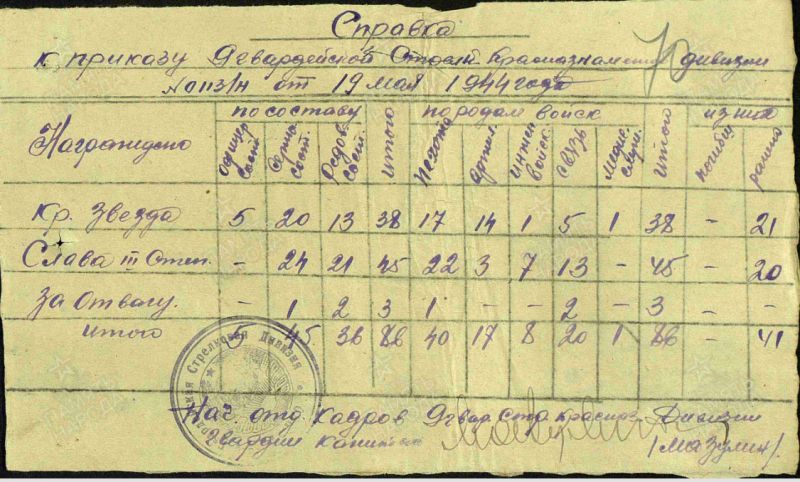 Справка
к приказу Дгвардейской Стрелк. Краснознаменной дивизии
№ 011з/н от 19 мая 1944 года
по составу по родам войск из них
Награждено офицер. сост. Сержан. сост. Рядов. сост. Итого Пехота Артил. инжен войск связь медс. служ. итого погибш. ранено
Кр. Звезда 5 20 13 38 17 14 1 5 1 38 - 21
Слава III Степ. - 24 21 45 22 3 7 13 - 45 - 20
За Отвагу. - 1 2 3 1 - - 2 - 3 - -
итого 5 45 36 86 40 17 8 20 1 86 - 41
Стрелковая Дивизия
Нач отд. Кадров гвар. Стр Красноз. Дивизии
Гвардии капитан /Мазулин/